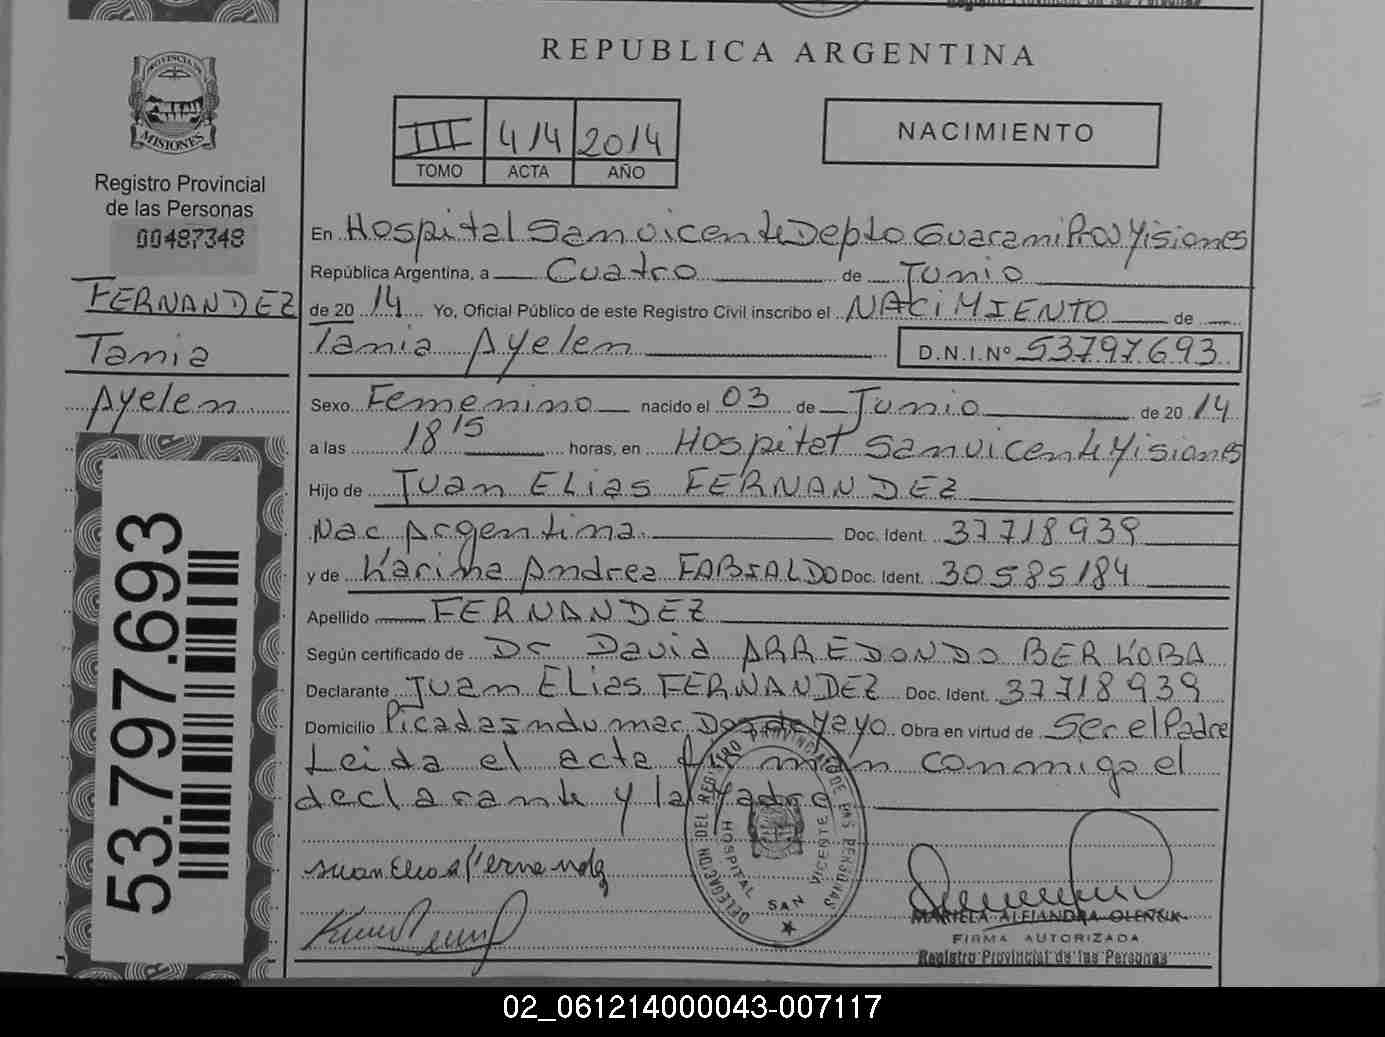 REPUBLICA ARGENTINA
PROVINCIA DE
MISIONES
Registro Provincial
de las Personas
00487348
FERNANDEZ
Tania
Ayelen
53.797.693
III 414 2014
TOMO ACTA AÑO
NACIMIENTO
En Hospital San vicente Depto Guarani Prov Misiones
República Argentina, a Cuatro de Junio
de 20 14 Yo, Oficial Público de este Registro Civil inscribo el NACIMIENTO de
Tania Ayelen D.N.I.Nº 53797693
Sexo Femenino nacido el 03 de Junio de 20 14
a las 18 15 horas, en Hospital San vicente Misiones
Hijo de Juan ELias FERNANDEZ
Nac Argentina Doc. Ident. 37718939
y de Karina Andrea Doc. Ident. 30585184
Apellido FERNANDEZ
Según certificado de Dr David ARREDONDO BERKOBA
Declarante Juan ELias FERNANDEZ Doc. Ident. 37718939
Domicilio Obra en virtud de Ser el Padre
Leida el acta firman conmigo el
declarante y la Madre
DELEGACION DEL REGISTRO PROVINCIAL DE LAS PERSONAS
HOSPITAL SAN VICENTE
Juan Elias Fernandez
MARIELA ALEJANDRA
FIRMA AUTORIZADA
Registro Provincial de las Personas
02_061214000043-007117